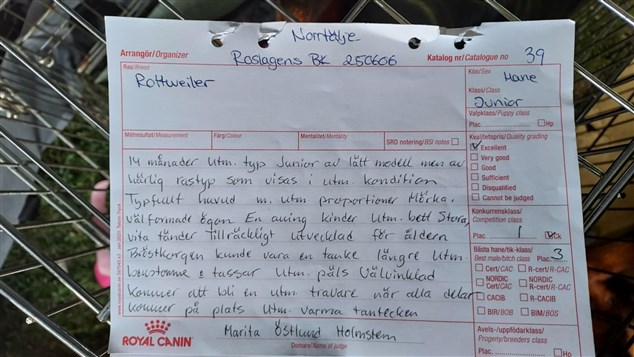 Norrtälje
Arrangör/Organizer
Roslagens BK 250606
Katalog nr/Catalogue no
39
Ras/Breed
Rottweiler
Kön/Sex
Hane
Klass/Class
Junior
Valpklass/Puppy class
Plac. Hp
Mätresultat/Measurement
Färg/Colour
Mentalitet/Mentality
SRD notering/BSI notes
Kvalitetspris/Quality grading
Excellent
Very good
Good
Sufficient
Disqualified
Cannot be judged
14 månader Utm. typ Junior av lätt modell men av
härlig rastyp som visas i utm. kondition
Typfullt huvud m. utm proportioner Mörka,
välformade ögon En aning kinder Utm. bett Stora,
vita tänder Tillräckligt utvecklad för åldern
Bröstkorgen kunde vara en tanke längre Utm.
benstomme & tassar Utm. päls Välvinklad
Kommer att bli en utm. travare när alla delar
kommer på plats Utm. varma tantecken
Konkurrensklass/
Competition class
Plac. 1 Ck
Bästa hane/tik-klass/
Best male/bitch class Plac. 3
Cert/CAC R-cert/R-CAC
NORDIC Cert/CAC NORDIC R-Cert/R-CAC
CACIB R-CACIB
BIR/BOB BIM/BOS
Avels-/uppfödarklass/
Progeny/breeders class
ROYAL CANIN
Marita Östlund Holmsten
Domare/Name of judge
Plac. Hp